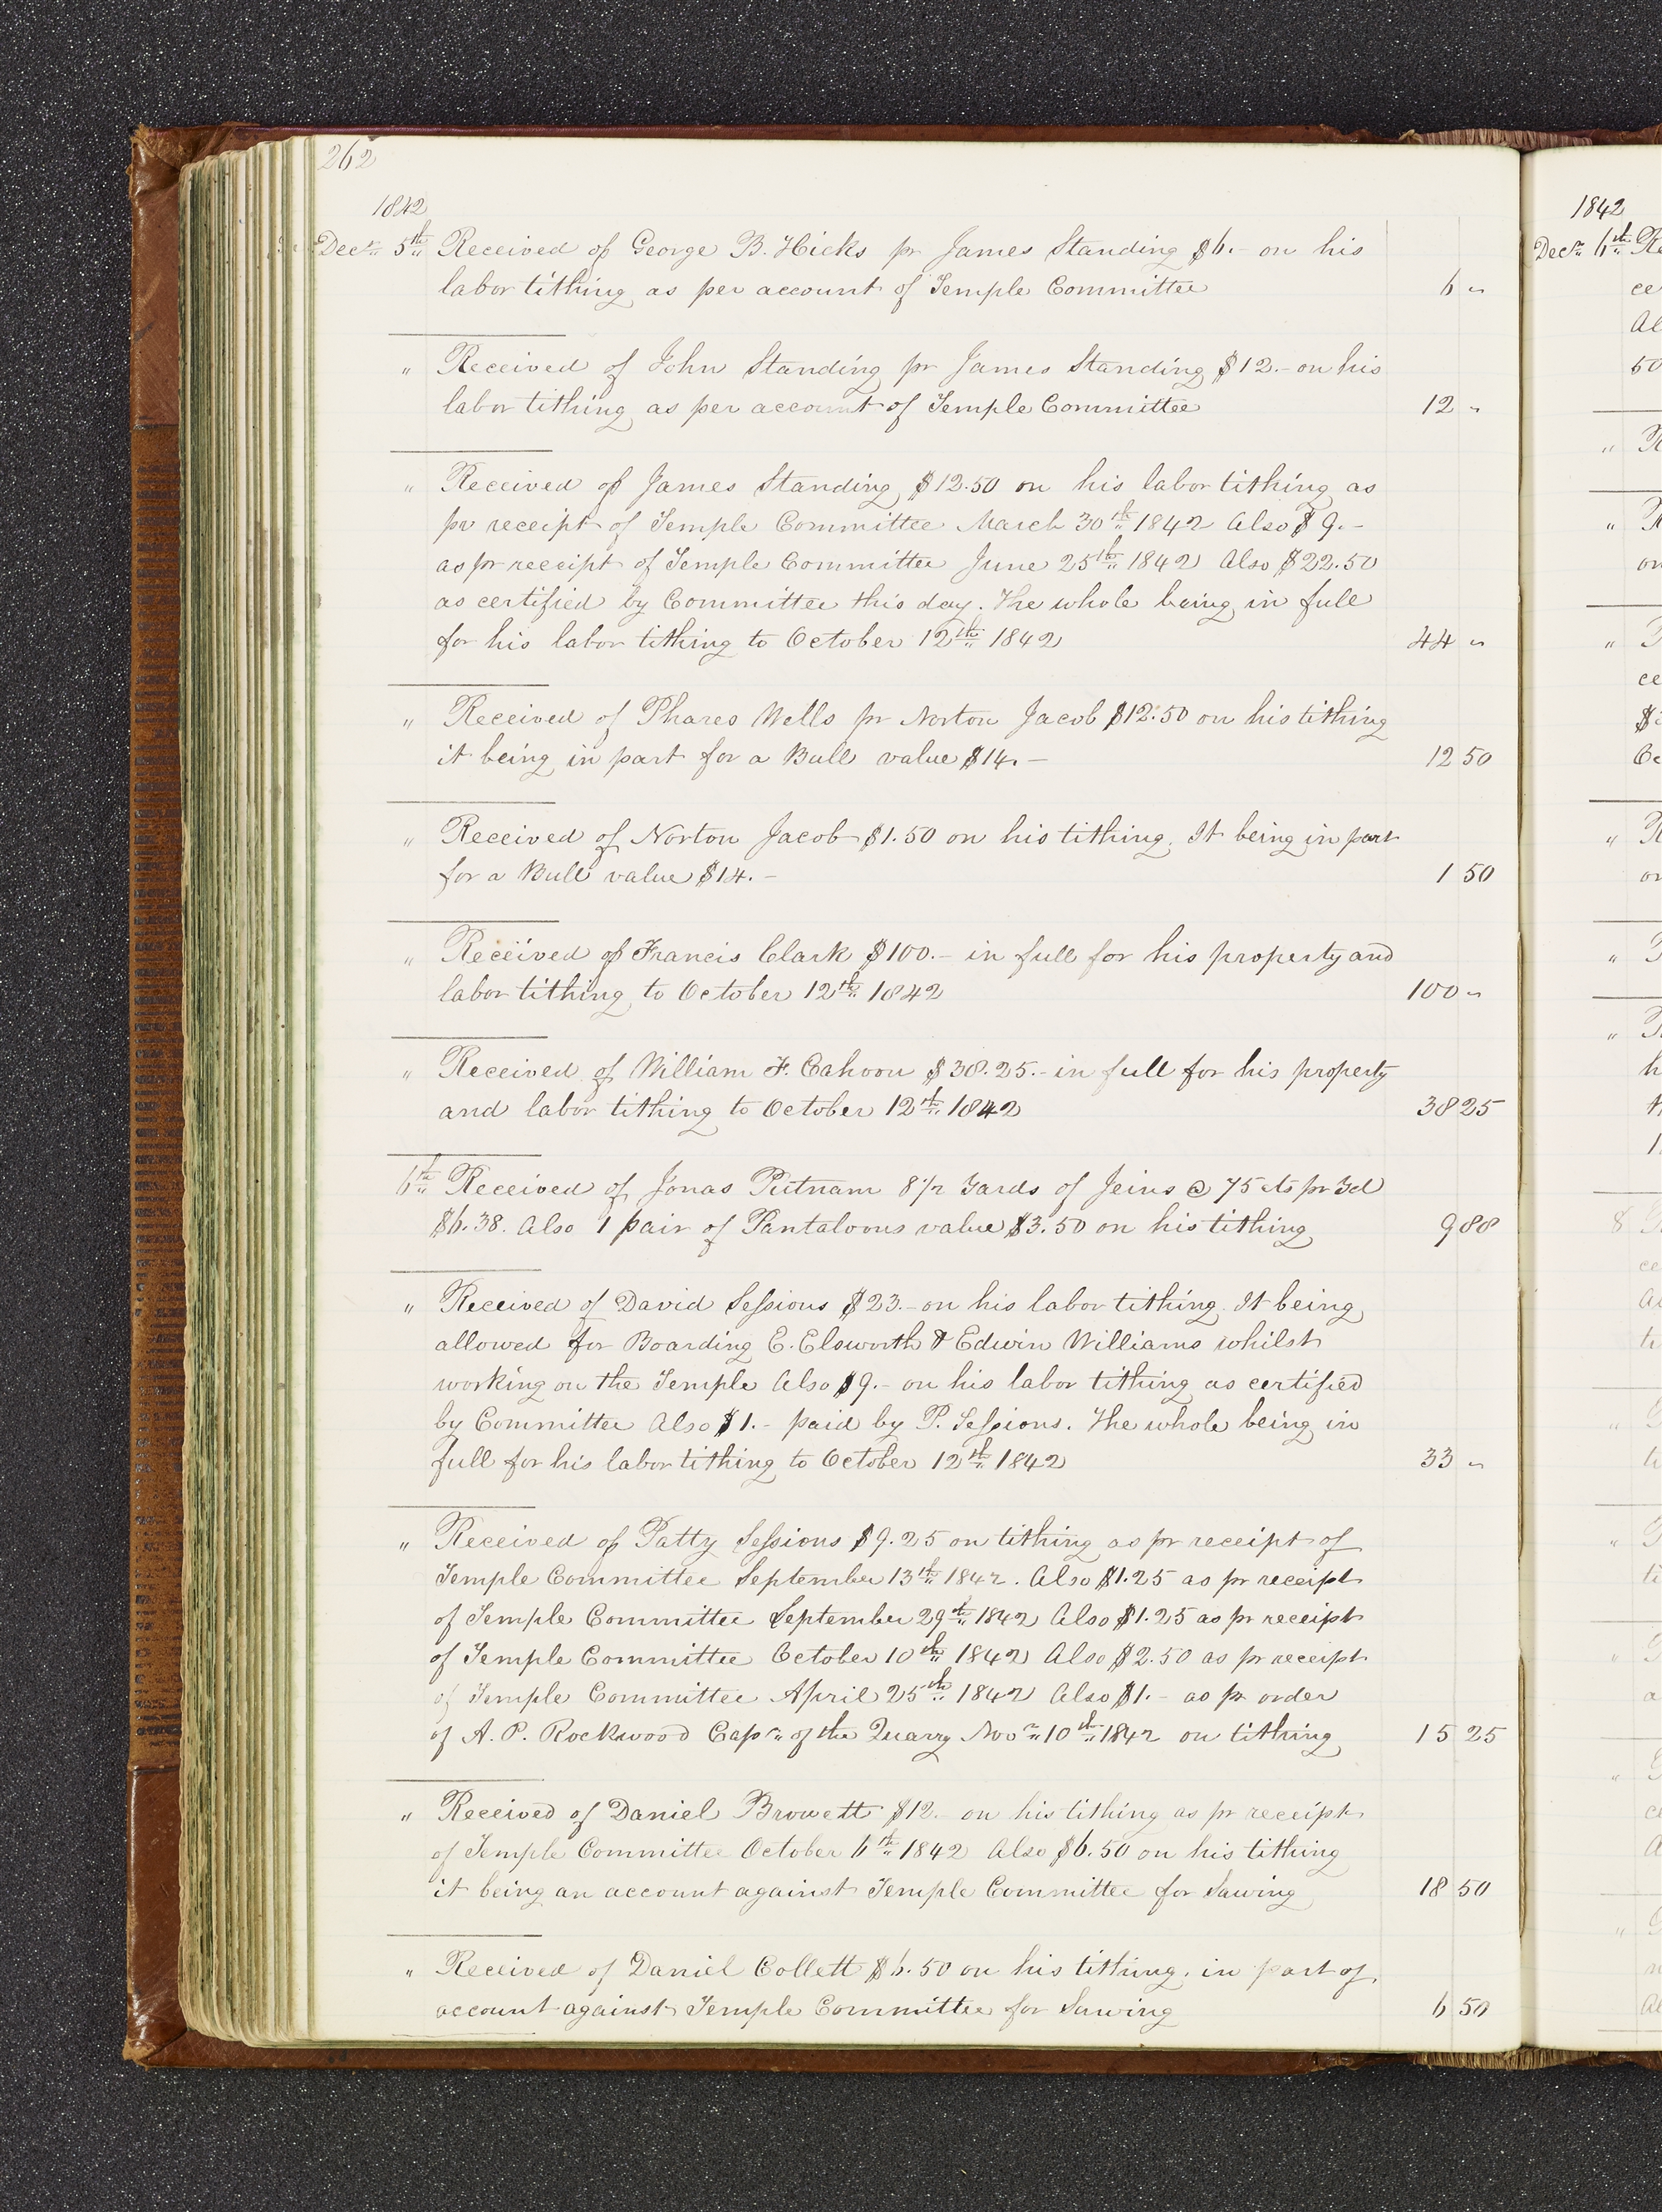 262
1842
Decr. 5th Received of George B. Hicks pr James Standing $6.- on his
labor tithing as per account of Temple Committee 6 "
" Received of John Standing pr James Standing $12.- on his
labor tithing as per account of Temple Committee 12 "
" Received of James Standing $12.50 on his labor tithing as
pr receipt of Temple Committee March 30th 1842 Also $9.-
as pr receipt of Temple Committee June 25th 1842 Also $22.50
as certified by Committee this day. The whole being in full
for his labor tithing to October 12th 1842 44 "
" Received of Phares Wells pr Norton Jacob $12.50 on his tithing
it being in part for a Bull value $14.- 12 50
" Received of Norton Jacob $1.50 on his tithing. It being in part
for a Bull value $14.- 1 50
" Received of Francis Clark $100.- in full for his property and
labor tithing to October 12th 1842 100 "
" Received of William F. Cahoon $38.25.- in full for his property
and labor tithing to October 12th 1842 38 25
6th Received of Jonas Putnam 8 1/2 Yards of Jeins @ 75 cts pr Yd
$6.38. Also 1 pair of Pantaloons value $3.50 on his tithing 9 88
" Received of David Sessions $23.- on his labor tithing. It being
allowed for Boarding E. Elsworth & Edwin Williams whilst
working on the Temple Also $9.- on his labor tithing as certified
by Committee Also $1.- paid by P. Sessions. The whole being in
full for his labor tithing to October 12th 1842 33 "
" Received of Patty Sessions $9.25 on tithing as pr receipt of
Temple Committee September 13th 1842. Also $1.25 as pr receipt
of Temple Committee September 29th 1842 Also $1.25 as pr receipt
of Temple Committee October 10th 1842 Also $2.50 as pr receipt
of Temple Committee April 25th 1842 Also $1.- as pr order
of A. P. Rockwood Capn. of the Quarry Novr 10th 1842 on tithing 15 25
" Received of Daniel Browett $12. on his tithing as pr receipt
of Temple Committee October 6th 1842 Also $6.50 on his tithing
it being an account against Temple Committee for Sawing 18 50
" Received of Daniel Collett $6.50 on his tithing. in part of
account against Temple Committee for Sawing 6 50
1842
Decr. 6th